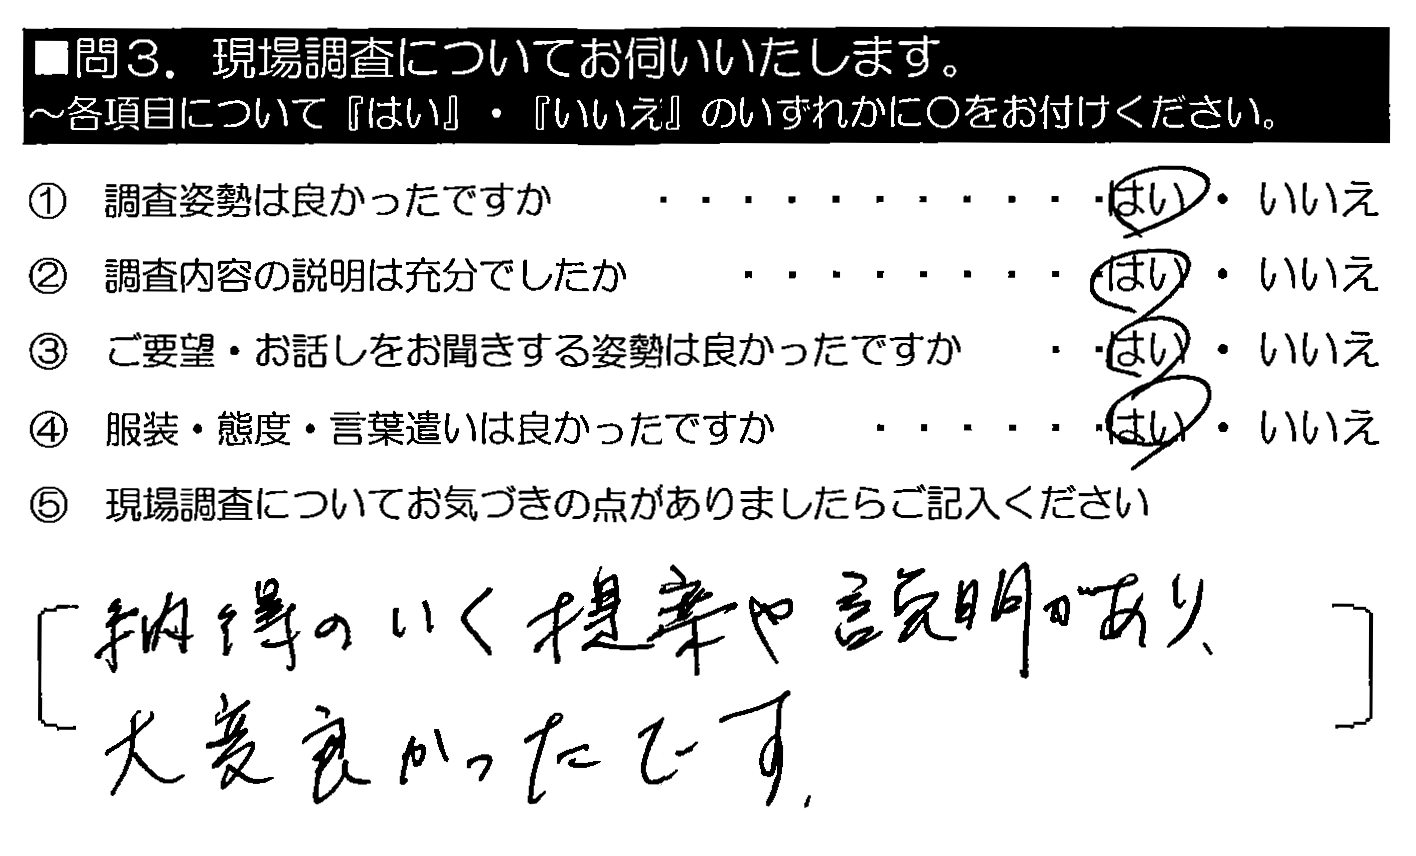 ■問3．現場調査についてお伺いいたします。
～各項目について『はい』・『いいえ』のいずれかに〇をお付けください。
① 調査姿勢は良かったですか ・・・・・・・・・・・・・はい・いいえ
② 調査内容の説明は充分でしたか ・・・・・・・・・はい・いいえ
③ ご要望・お話しをお聞きする姿勢は良かったですか ・・はい・いいえ
④ 服装・態度・言葉遣いは良かったですか ・・・・・・はい・いいえ
⑤ 現場調査についてお気づきの点がありましたらご記入ください
納得のいく提案や説明があり、
大変良かったです.